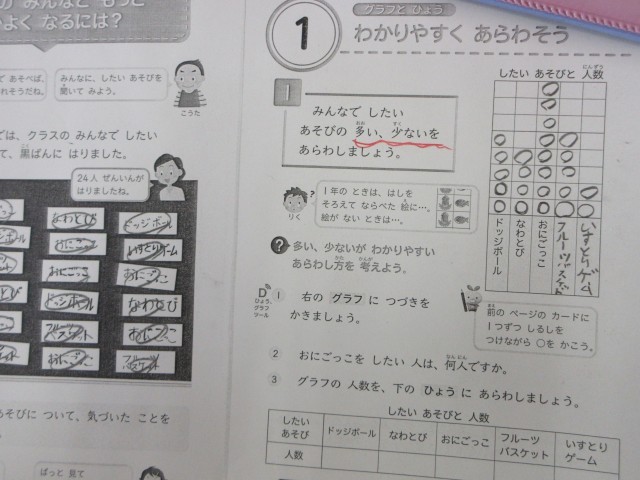 みんなと もっと
よく なるには?
で あそべば、
れそうだね。
みんなに、したい あそびを
聞いて みよう。
こうた
では、クラスの みんなで したい
て、黒ばんに はりました。
24人 ぜんいんが
はりましたね。
なわとび
ドッジボール
おにごっこ
いすとりゲーム
おにごっこ
おにごっこ
ドッジボール
なわとび
おにごっこ
おにごっこ
あそびに ついて、気づいた ことを
ぱっと 見て
1
グラフと ひょう
わかりやすく あらわそう
1
みんなで したい
あそびの 多い、少ないを
あらわしましょう。
りく
1年の ときは、はしを
そろえて ならべた 絵に…。
絵が ない ときは…。
? 多い、少ないが わかりやすい
あらわし方を 考えよう。
D
ひょう、
グラフ
ツール
1 右の グラフ に つづきを
かきましょう。
したい あそびと 人数
ドッジボール
なわとび
おにごっこ
フルーツバスケット
いすとりゲーム
前の ページの カードに
1つずつ しるしを
つけながら ○を かこう。
2 おにごっこを したい 人は、何人ですか。
3 グラフの 人数を、下の ひょう に あらわしましょう。
したい あそびと 人数
したい
あそび
ドッジボール
なわとび
おにごっこ
フルーツ
バスケット
いすとり
ゲーム
人数